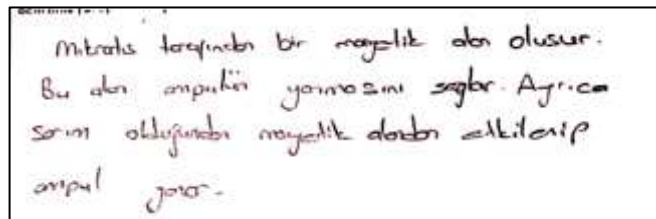 Mıknatıs tarafından bir manyetik alan oluşur.
Bu alan ampulün yanmasını sağlar. Ayrıca
sarım olduğundan manyetik alandan etkilenip
ampul yanar.